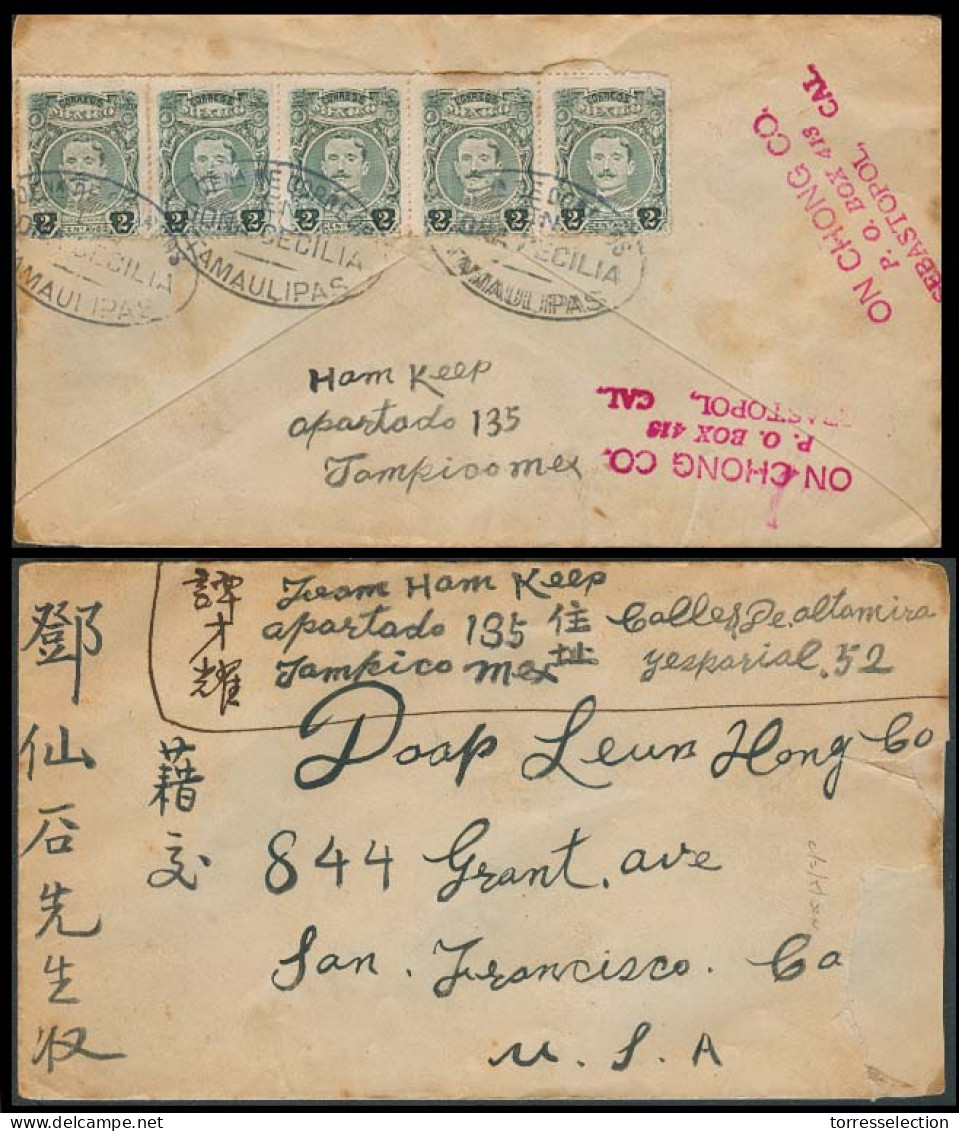 CORREOS MEXICO
2 CENTAVOS 2
CORREOS MEXICO
2 CENTAVOS 2
CORREOS MEXICO
2 CENTAVOS 2
CORREOS MEXICO
2 CENTAVOS 2
CORREOS MEXICO
2 CENTAVOS 2
CECILIA
TAMAULIPAS
CECILIA
TAMAULIPAS
CECILIA
TAMAULIPAS
ON CHONG CO.
P. O. BOX 413
SEBASTOPOL, CAL.
Ham Keep
apartado 135
Tampico mex
ON CHONG CO.
P. O. BOX 413
EBASTOPOL, CAL.
鄧仙石先生收
藉交
譚才耀
Ham Keep
apartado 135
Tampico Mex
住址
Calles De altamira
52
Doap Leun Hong Co
844 Grant. ave
San. Francisco. Ca
U. S. A
torresselection